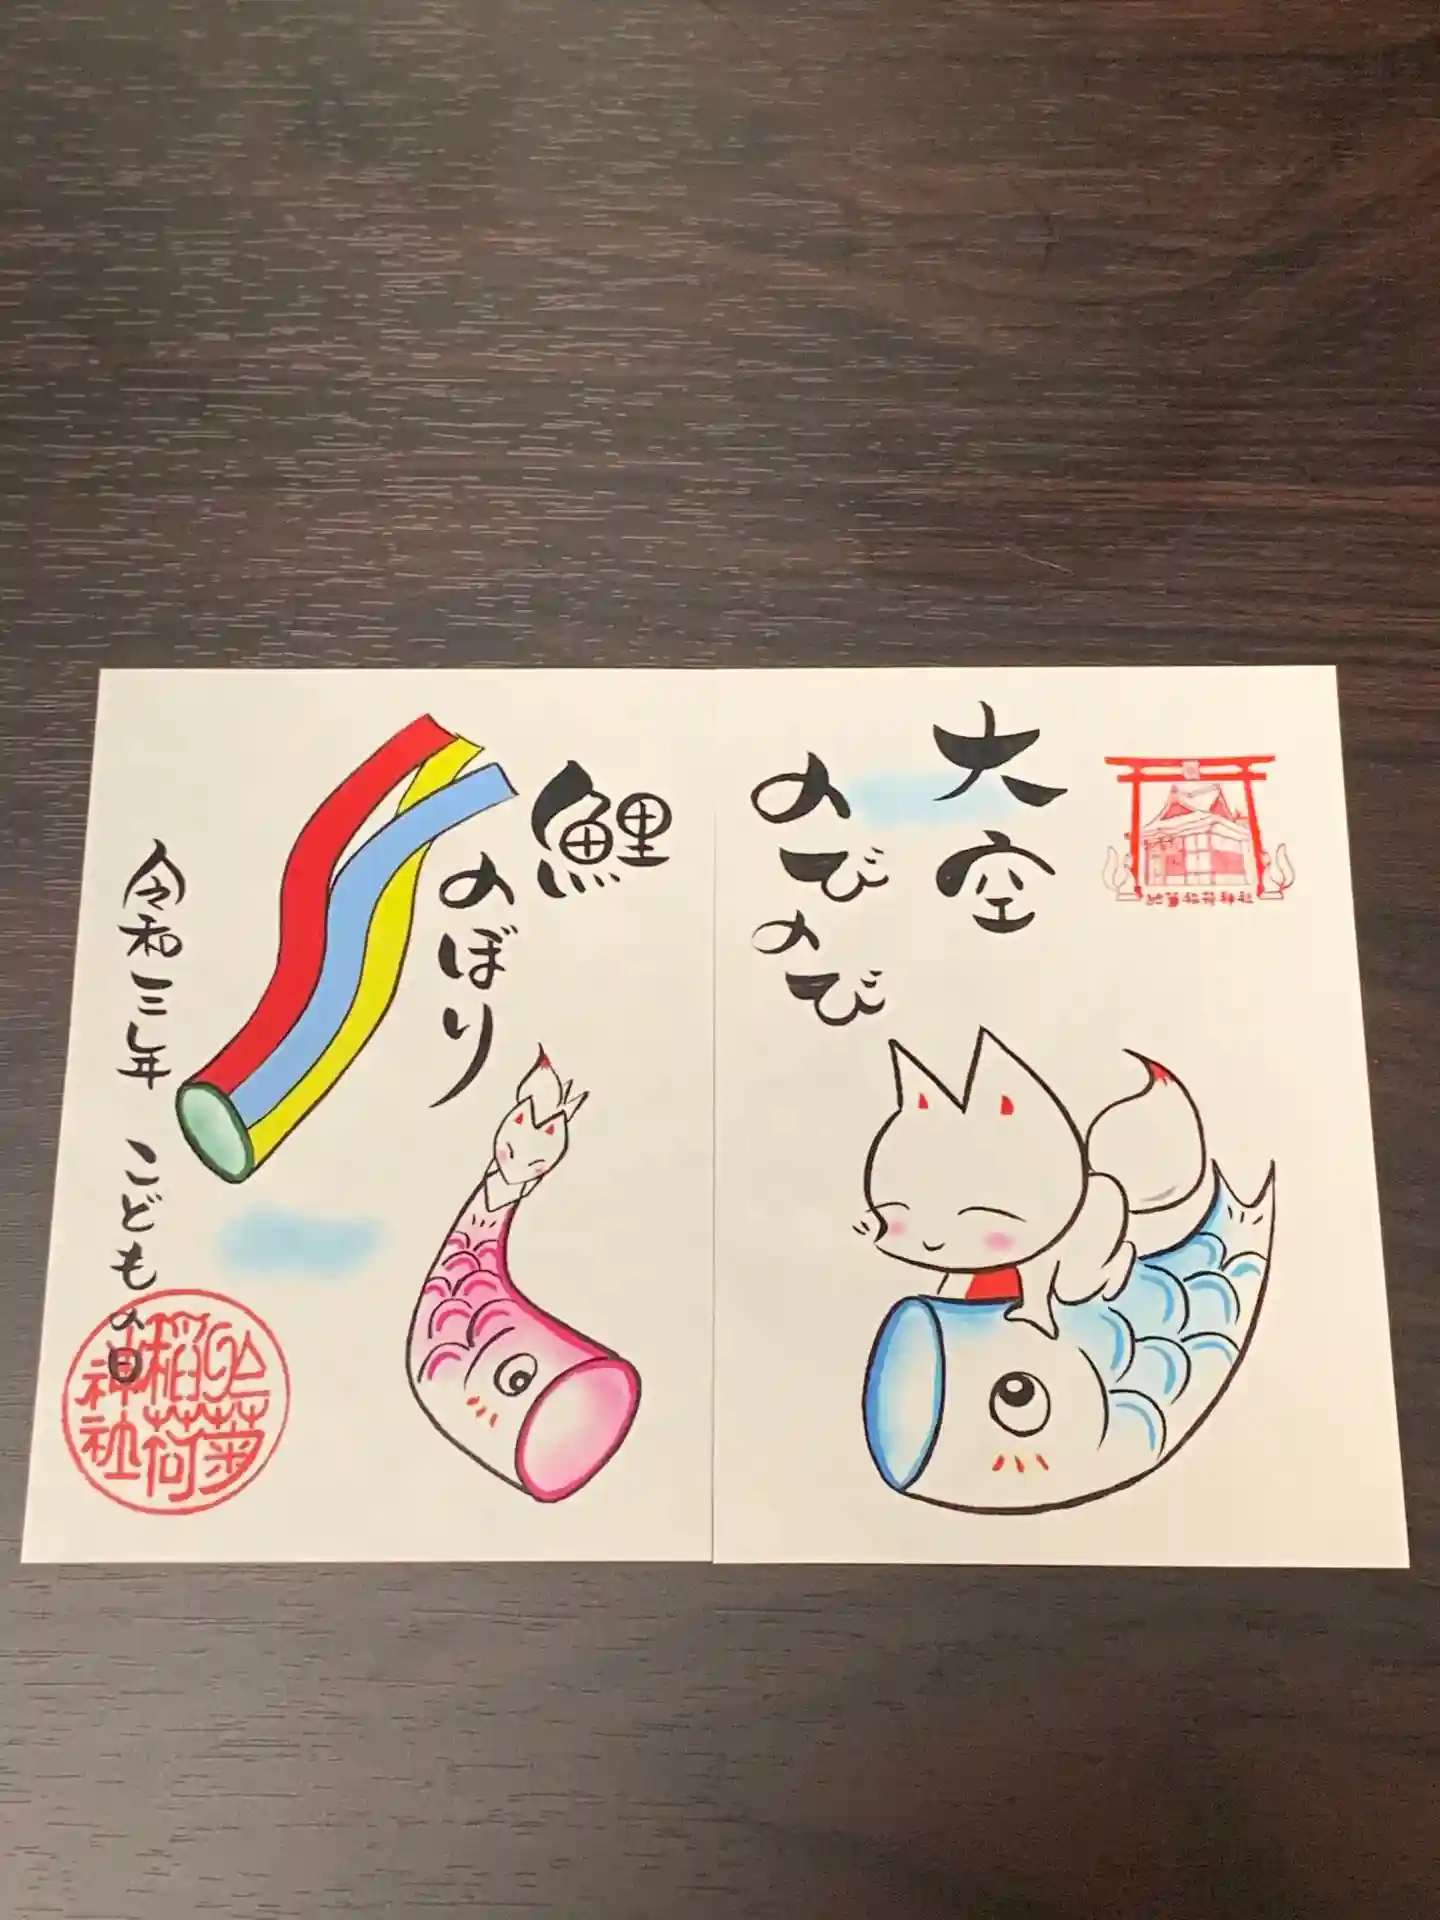 於菊稲荷神社
大空
のびのび
鯉
のぼり
令和三年 こどもの日
於菊
稲荷
神社